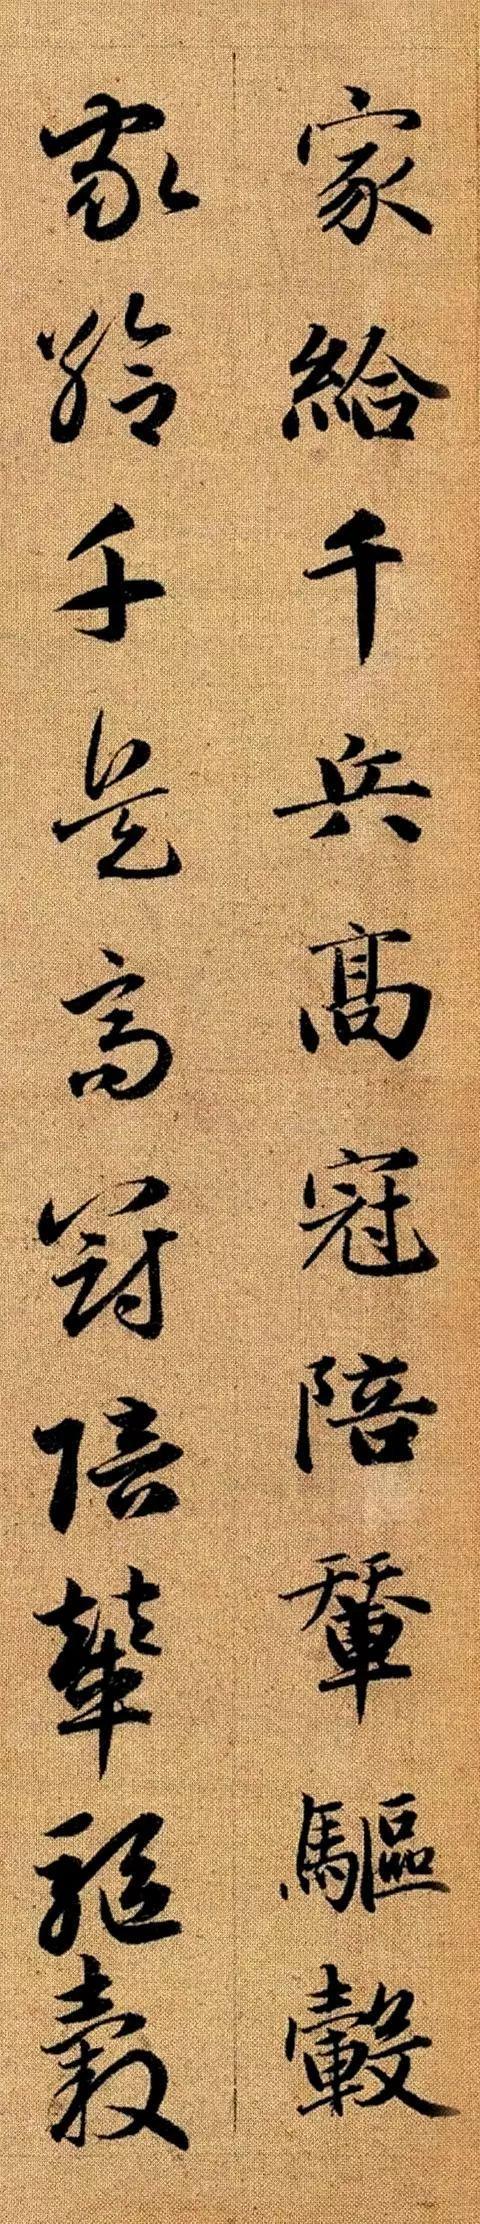 家給千兵高冠陪輦驅轂
家給千兵高冠陪輦驅轂